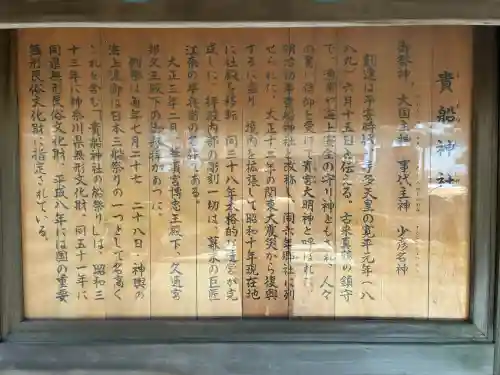 貴船神社
御祭神 大国主神 事代主神 少彦名神
創建は平安時代、宇多天皇の寛平元年（八
八九）六月十五日と伝える。古来真鶴の鎮守
で、漁業や海上安全の守り神ともされ、人々
の篤い信仰を受け、貴宮大明神と呼ばれた。
明治初年貴船神社と改称し、同六年郷社に列
せられた。大正十二年の関東大震災から復興
するに当り、境内を拡張して昭和十年現在地
に社殿を移転、同三十八年本格的な造営が完
成した。拝殿内部の彫刻一切は、幕末の巨匠
江奈の半兵衛の名作である。
大正三年二月、華頂宮博忠王殿下、久邇宮
邦久王殿下の御参拝があった。
例祭は毎年七月二十七、二十八日・神輿の
海上渡御は日本三船祭りの一つとして名高く
これを含む「貴船神社の船祭り」は、昭和三
十三年に神奈川県無形文化財、同五十一年に
同県無形民俗文化財、平成八年には国の重要
無形民俗文化財に指定されている。